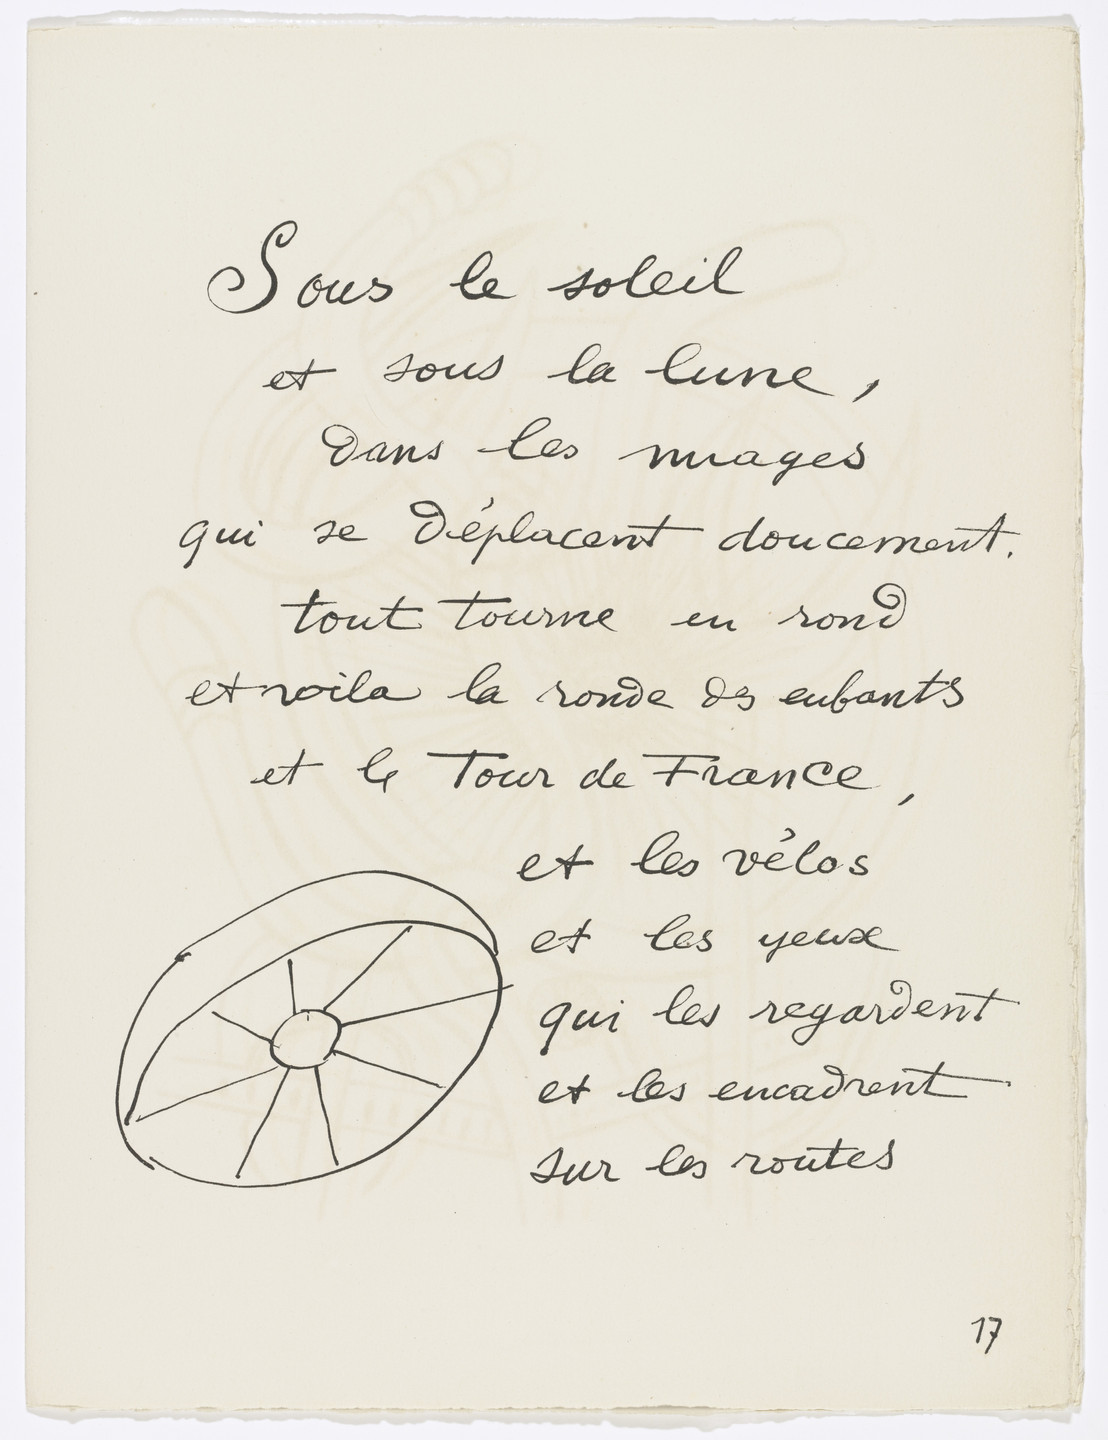 Sous le soleil
et sous la lune,
dans les nuages
qui se déplacent doucement.
tout tourne en rond
et voila la ronde des enfants
et le Tour de France,
et les vélos
et les yeux
qui les regardent
et les encadrent
sur les routes
17